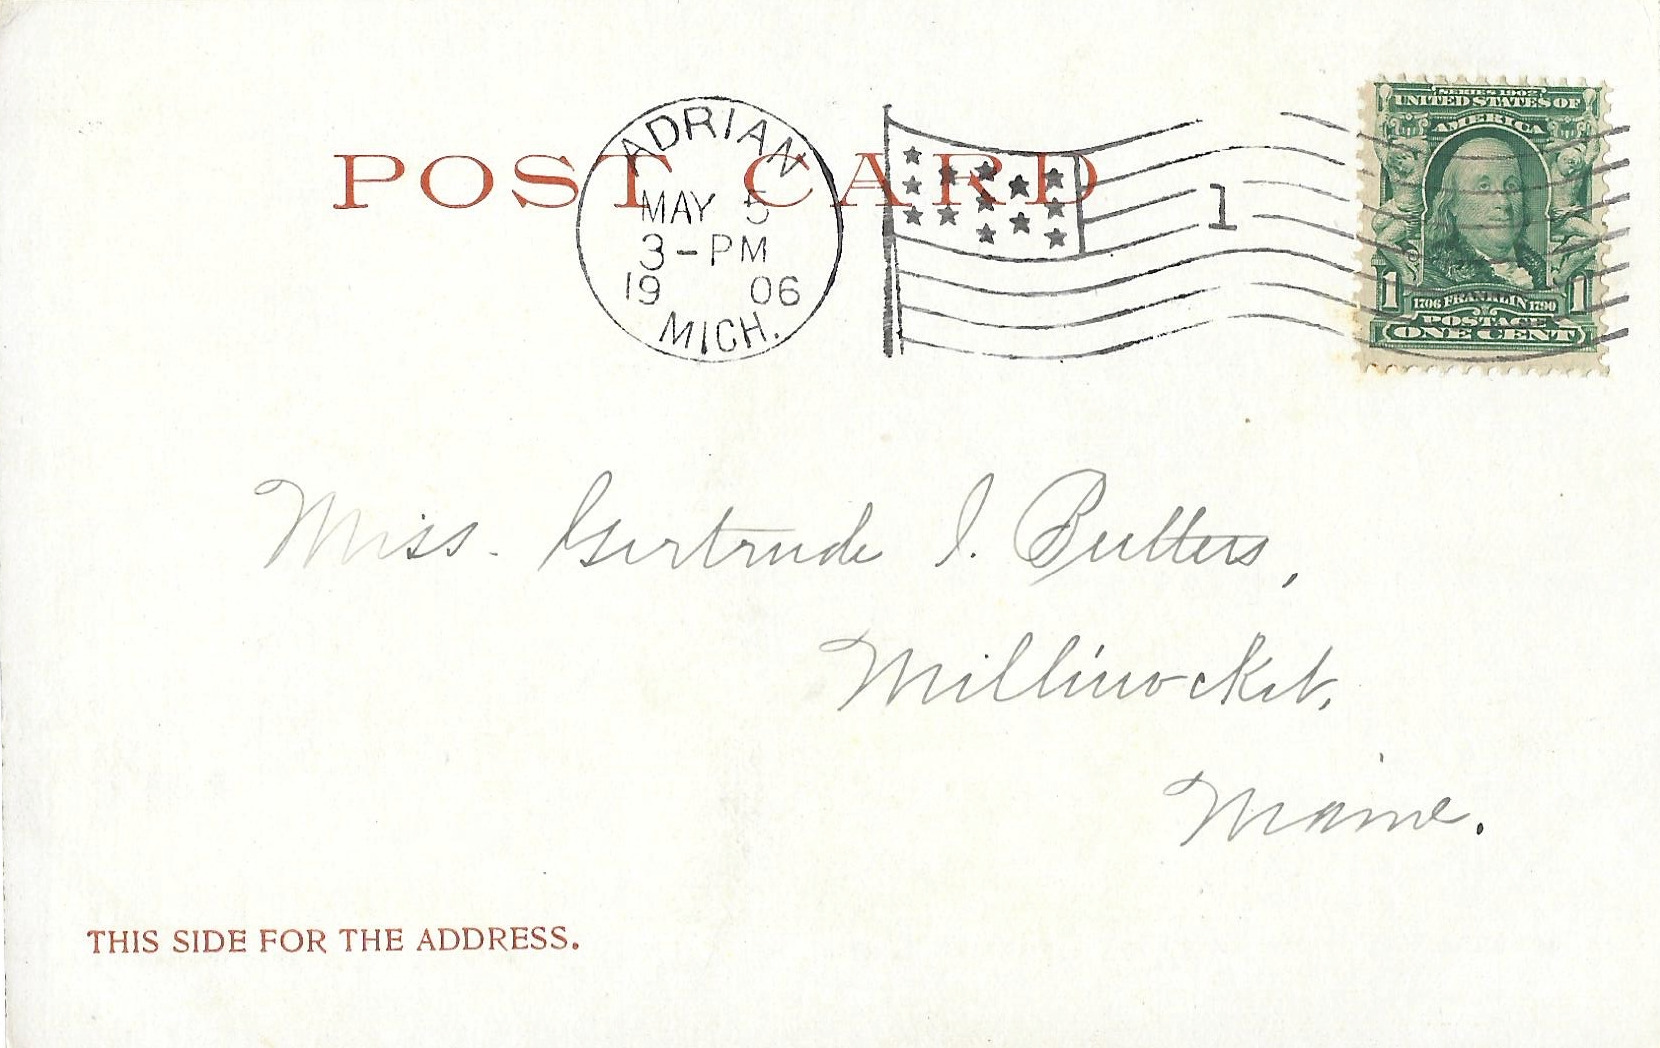 POST CARD
ADRIAN
MAY 5
3-PM
19 06
MICH.
1
SERIES 1902
UNITED STATES OF
AMERICA
1 1706 FRANKLIN 1790 1
POSTAGE
ONE CENT
Miss. Gertrude I. Butters,
Millinocket,
Maine.
THIS SIDE FOR THE ADDRESS.